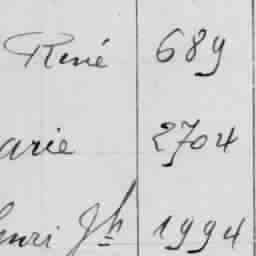 René 689
arie 2704
enri Jh 1994